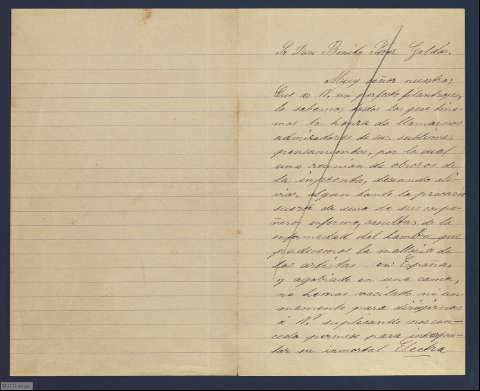 Sr Don Benito Pérez Galdós.
Muy señor nuestro:
Que es V. un perfecto filántropo,
lo sabemos todos los que tene-
mos la honra de llamarnos
admiradores de sus sublimes
pensamientos, por lo cual
una reunión de obreros de
la imprenta, deseando ali-
viar algun tanto la precaria
suerte de uno de sus compa-
ñeros enfermo, resultas de la
enfermedad del hambre que
padecemos la mayoría de
los artistas en España,
y agobiado en una cama,
no hemos vacilado ni un
momento para dirigirnos
á V. suplicando nos con-
ceda permiso para interpre-
tar su inmortal Electra